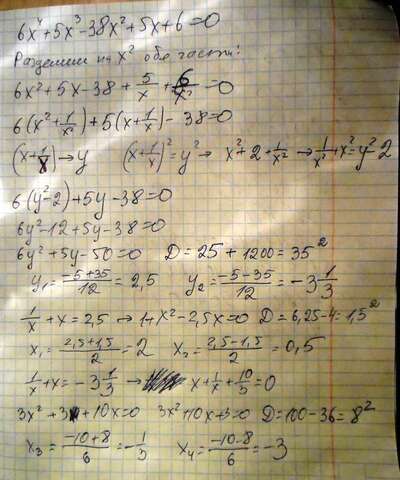 6x⁴+5x³-38x²+5x+6=0
Разделим на x² обе части!
6x²+5x-38+5/x+6/x²=0
6(x²+1/x²)+5(x+1/x)-38=0
(x+1/x)→y (x+1/x)²=y²→ x²+2+1/x² →1/x²+x²=y²-2
6(y²-2)+5y-38=0
6y²-12+5y-38=0
6y²+5y-50=0 D=25+1200=35²
y₁=(-5+35)/12=2,5 y₂=(-5-35)/12=-3 1/3
1/x+x=2,5 → 1+x²-2,5x=0 D=6,25-4=1,5²
x₁=(2,5+1,5)/2=2 x₂=(2,5-1,5)/2=0,5
1/x+x=-3 1/3 → x+1/x+10/3=0
3x²+3+10x=0 3x²+10x+3=0 D=100-36=8²
x₃=(-10+8)/6=-1/3 x₄=(-10-8)/6=-3